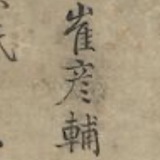 崔彦輔